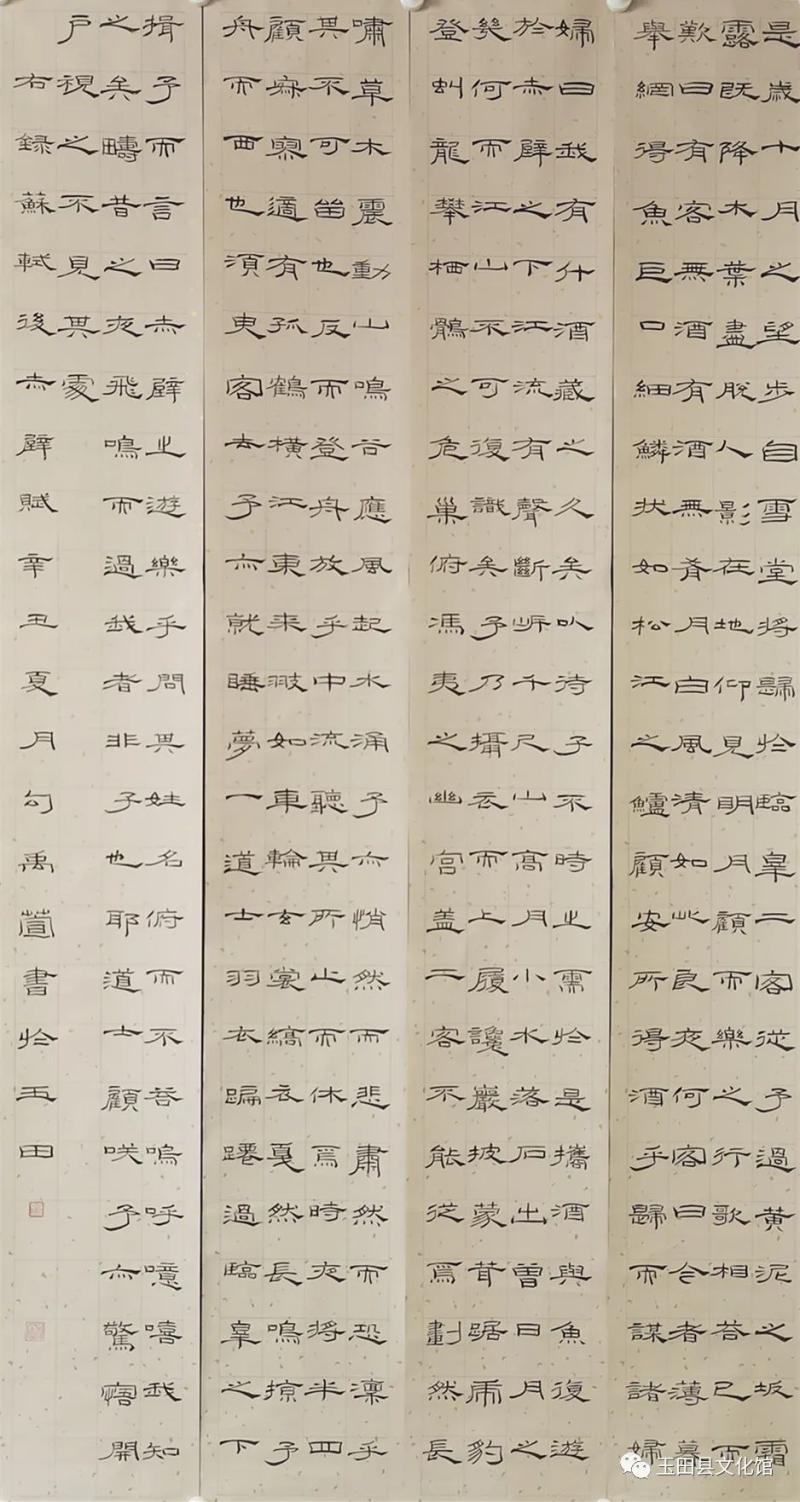 是歲十月之望步自雪堂將歸於臨皋二客從予過黃泥之坂霜
露既降木葉盡脫人影在地仰見明月顧而樂之行歌相答已而
歎曰有客無酒有酒無肴月白風清如此良夜何客曰今者薄暮
舉網得魚巨口細鱗狀如松江之鱸顧安所得酒乎歸而謀諸婦
婦曰我有斗酒藏之久矣以待子不時之需於是攜酒與魚復遊
於赤壁之下江流有聲斷岸千尺山高月小水落石出曾日月之
幾何而江山不可復識矣予乃攝衣而上履巉巖披蒙茸踞虎豹
登虯龍攀栖鶻之危巢俯馮夷之幽宮蓋二客不能從焉劃然長
嘯草木震動山鳴谷應風起水涌予亦悄然而悲肅然而恐凜乎
其不可留也反而登舟放乎中流聽其所止而休焉時夜將半四
顧寂寥適有孤鶴橫江東来翅如車輪玄裳縞衣戛然長鳴掠予
舟而西也須臾客去予亦就睡夢一道士羽衣蹁躚過臨皋之下
揖予而言曰赤壁之遊樂乎問其姓名俯而不答嗚呼噫嘻我知
之矣疇昔之夜飛鳴而過我者非子也耶道士顧咲予亦驚寤開
戶視之不見其處
右録蘇軾後赤壁賦辛丑夏月勾禹萱書於玉田
玉田县文化馆